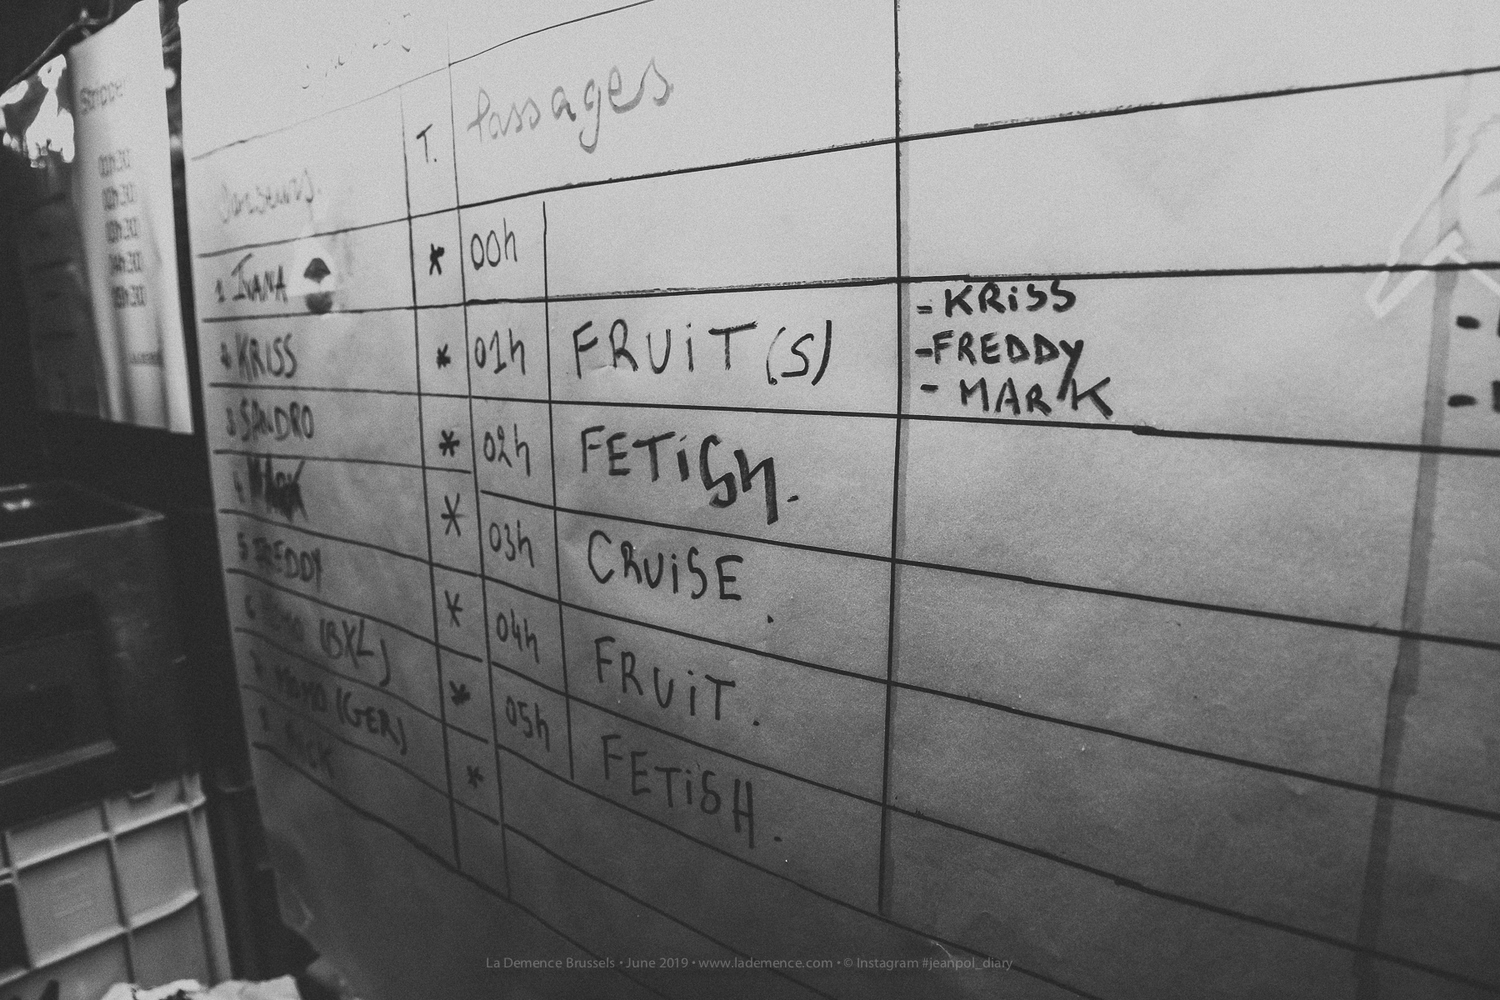 Strippe
00h30
04h30
05h30
Danseurs.
T.
Passages
1 IVANA
*
00h
2 KRISS
*
01h
FRUiT(S)
- KRiSS
-FREDDY
- MARK
3 SANDRO
*
02h
FETiSH.
4 MARK
*
03h
CRUiSE.
5 FREDDY
*
04h
FRUiT.
6 MOMO (BXL)
*
05h
FETiSH.
7 MOMO (GER)
*
8
La Demence Brussels • June 2019 • www.lademence.com • © Instagram #jeanpol_diary